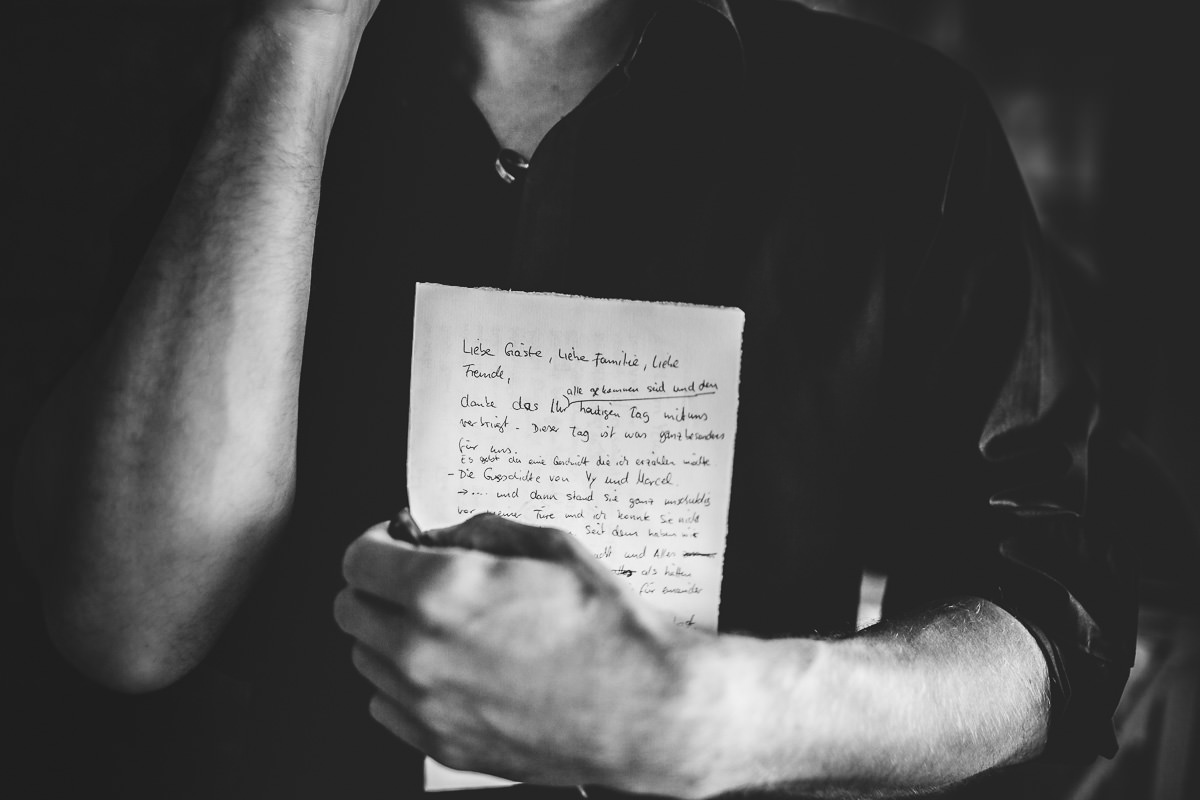 Liebe Gäste, Liebe Familie, Liebe
Freunde,
alle gekommen seid und den
danke das Ihr heutigen Tag mit uns
verbringt. Dieser Tag ist was ganz besonderes
für uns.
Es gibt da eine Geschicht die ich erzählen möchte.
- Die Gesschichte von Vy und Marcel.
→.... und dann stand sie ganz unschuldig
vor meiner Türe und ich konnte sie nicht
Seit dem haben wir
und Alles
als hätten
für einander